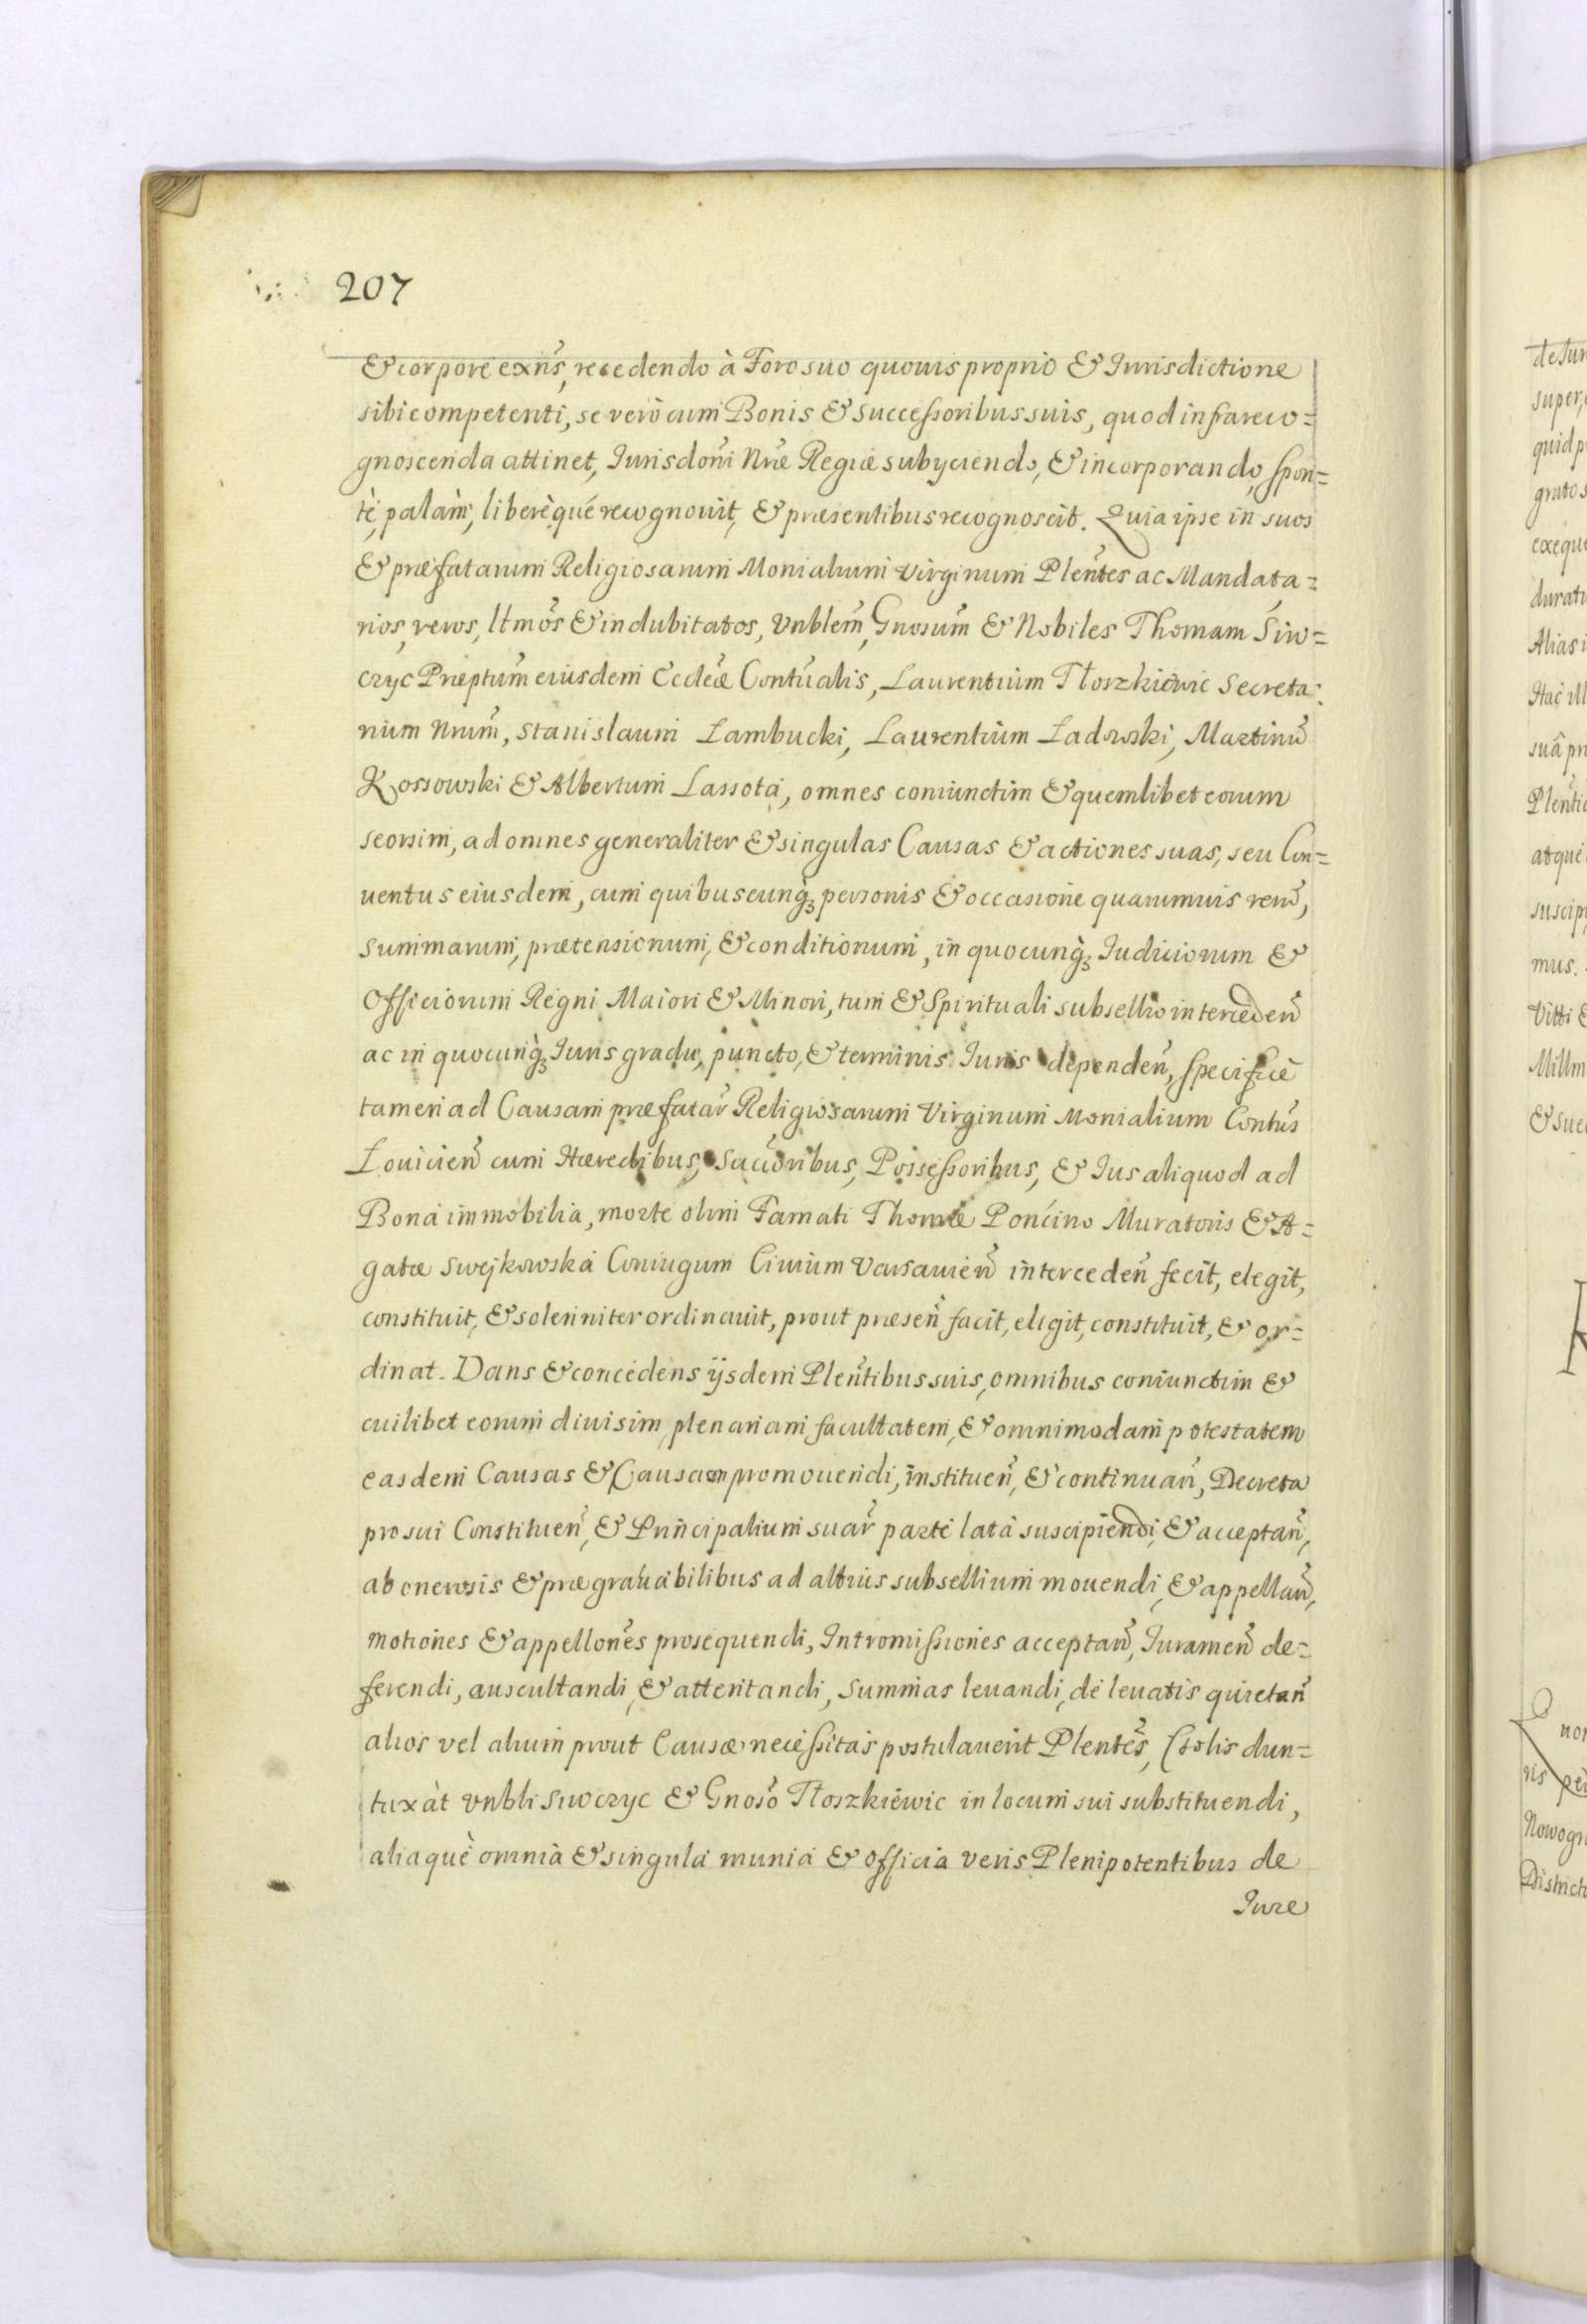 207
& corpore exñs, recedendo à Foro suo quouis proprio & Iurisdictione
sibi competenti, se verò cum Bonis & Successoribus suis, quod infra reco=
gnoscenda attinet, Iurisdom̃ Nrãe Regiæ subyciendo, & incorporando, spon=
tè, palàm, liberèqué recognouit, & præsentibus recognoscit. Quia ipse in suos
& præfatarum Religiosarum Monialium Virginum Pleñtes ac Mandata=
rios, veros, ltmõs & indubitatos, Vnblem̃, Gnosum̃ & Nobiles Thomam Siw=
czyc Præptum̃ eiusdem Ecclẽæ Contũalis, Laurentium Tłoszkiewic Secreta=
rium Nrum̃, Stanislaum Łambucki, Laurentium Ładowski, Martinũ
Kossowski & Albertum Lassota, omnes coniunctim & quemlibet eorum
seorsim, ad omnes generaliter & singulas Causas & actiones suas, seu Con=
uentus eiusdem, cum quibuscunq̀ꝫ personis & occasione quarumuis rerũ,
summarum, prætensionum, & conditionum, in quocunq̀ꝫ Iudiciorum &
Officiorum Regni Maiori & Minori, tum & Spirituali subsellio intercedeñ
ac in quocunq̀ꝫ Iuris gradu, puncto, & terminis Iuris dependeñ, specificè
tamen ad Causam præfatar̃ Religiosarum Virginum Monialium Contũs
Łouicieñ cum Hæredibus, Succ̃oribus, Possessoribus, & Ius aliquod ad
Bona immobilia, morte olim Famati Thomæ Poncino Muratoris & A=
gatæ Swejkowska Coniugum Ciuium Varsauieñ intercedeñ fecit, elegit,
constituit, & solenniter ordinauit, prout præseñ facit, eligit, constituit, & or=
dinat. Dans & concedens ijsdem Pleñtibus suis, omnibus coniunctim &
cuilibet eorum diuisim, plenariam facultatem, & omnimodam potestatem
easdem Causas & Causam promouendi, instituẽn, & continuañ, Decreta
pro sui Constitueñ, & Principalium suar̃ parte lata suscipiendi, & acceptañ,
ab onerosis & prægrauabilibus ad altius subsellium mouendi, & appellañ,
motiones & appellonẽs prosequendi, Intromissiones acceptañ, Iurameñ de=
ferendi, auscultandi, & attentandi, Summas leuandi, de leuatis quietañ
alios vel alium prout Causæ necessitas postulauerit Plentẽs, (solis dun=
taxàt Vnbli Siwczyc & Gnosõ Tłoszkiewic in locum sui substituendi,
aliaquè omnia & singula munia & officia veris Plenipotentibus de
Iure